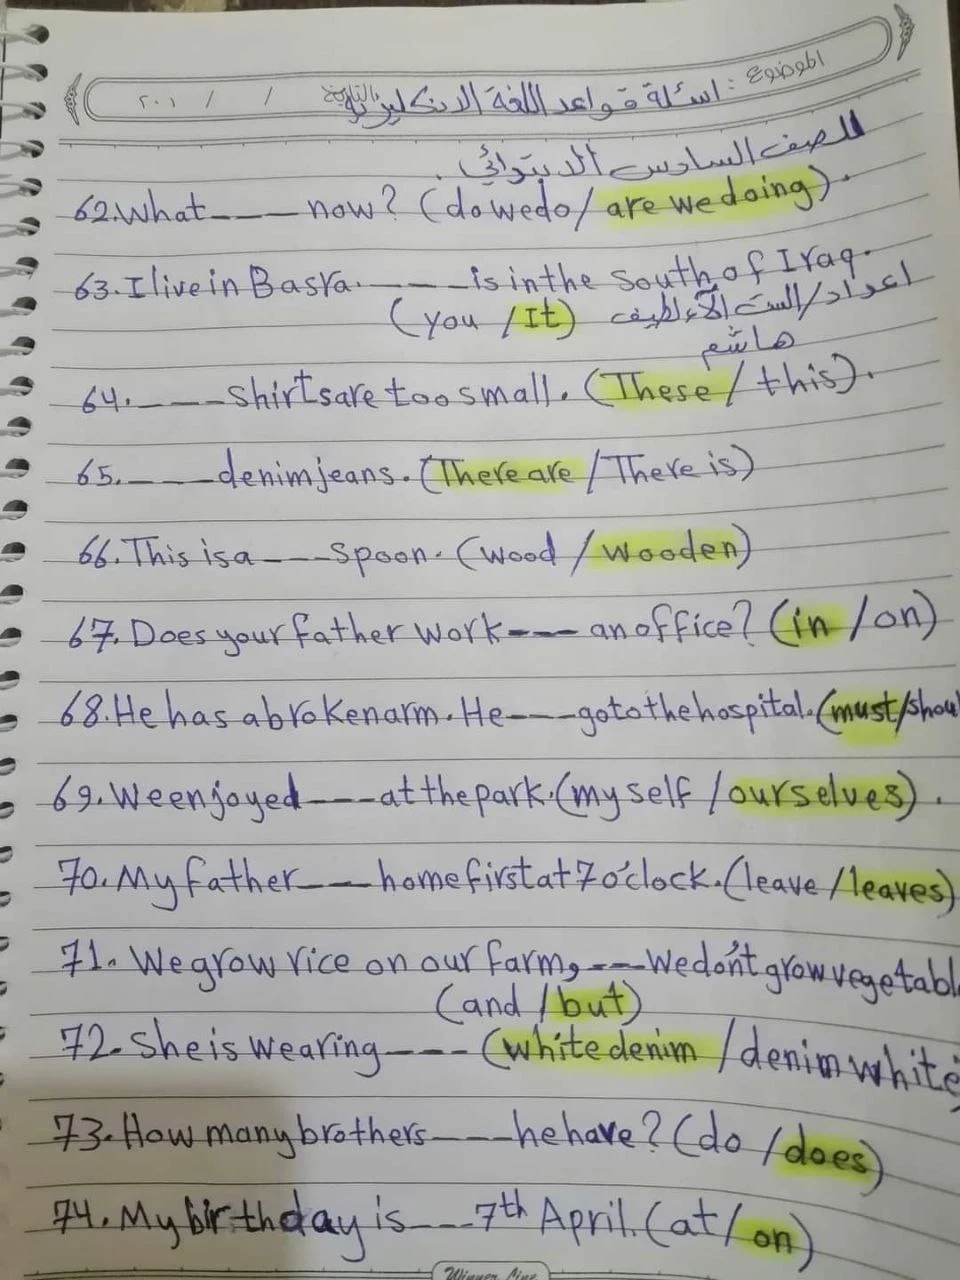 الموضوع : اسئلة قواعد اللغة الانكليزية التاريخ / / ٢٠١
للصف السادس الابتدائي .
62. What ---- now? (do we do / are we doing).
63. I live in Basra. ---- is in the South of Iraq.
(you / It) اعداد / الست آلاء لطيف
هاشم
64. ---- shirts are too small. (These / this).
65. ---- denim jeans. (There are / There is)
66. This is a ---- spoon. (wood / wooden)
67. Does your father work --- an office? (in / on)
68. He has a broken arm. He --- go to the hospital. (must/shou
69. We enjoyed --- at the park. (my self / ourselves).
70. My father --- home first at 7 o'clock. (leave / leaves)
71. We grow rice on our farm, --- We don't grow vegetabl
(and / but)
72. She is wearing ---- (white denim / denim white
73. How many brothers --- he have? (do / does)
74. My birthday is --- 7th April. (at / on)
Winner Line